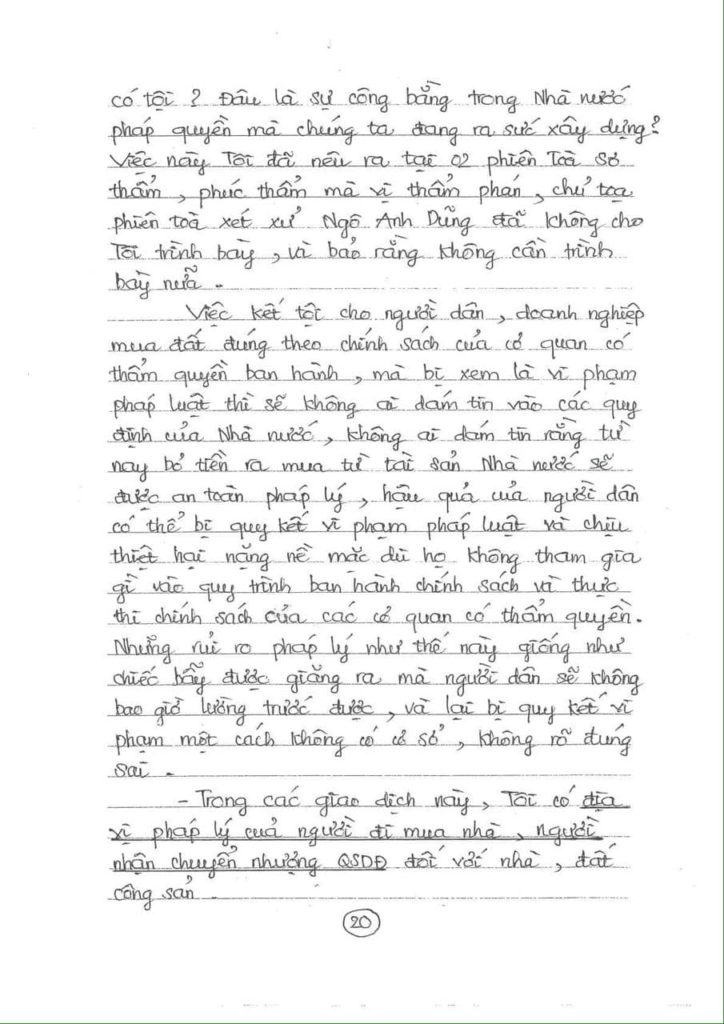 có tội ? Đâu là sự công bằng trong Nhà nước
pháp quyền mà chúng ta đang ra sức xây dựng?
Việc này Tôi đã nêu ra tại 02 phiên Toà sơ
thẩm, phúc thẩm mà vị thẩm phán, chủ tọa
phiên toà xét xử Ngô Anh Dũng đã không cho
Tôi trình bày, và bảo rằng không cần trình
bày nữa.
Việc kết tội cho người dân, doanh nghiệp
mua đất đúng theo chính sách của cơ quan có
thẩm quyền ban hành, mà bị xem là vi phạm
pháp luật thì sẽ không ai dám tin vào các quy
định của Nhà nước, không ai dám tin rằng từ
nay bỏ tiền ra mua từ tài sản Nhà nước sẽ
được an toàn pháp lý, hậu quả của người dân
có thể bị quy kết vi phạm pháp luật và chịu
thiệt hại nặng nề mặc dù họ không tham gia
gì vào quy trình ban hành chính sách và thực
thi chính sách của các cơ quan có thẩm quyền.
Những rủi ro pháp lý như thế này giống như
chiếc bẫy được giăng ra mà người dân sẽ không
bao giờ lường trước được, và lại bị quy kết vi
phạm một cách không có cơ sở, không rõ đúng
sai.
- Trong các giao dịch này, Tôi có địa
vị pháp lý của người đi mua nhà, người
nhận chuyển nhượng QSDĐ đối với nhà, đất
công sản.
20